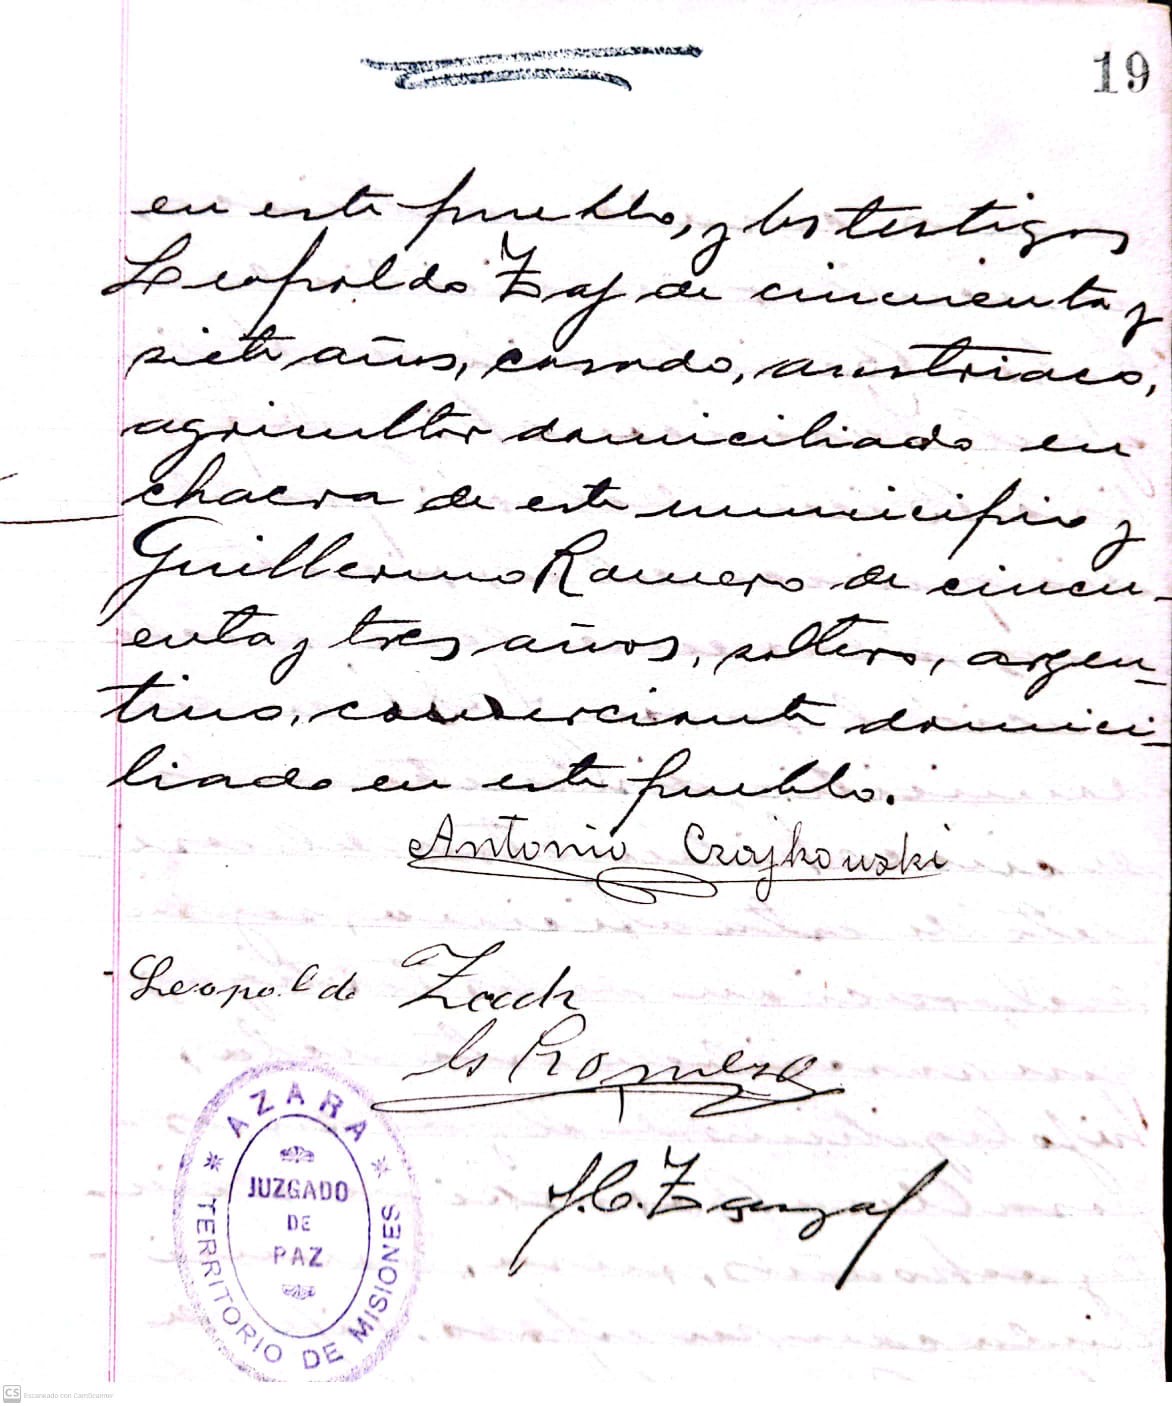 19
en este pueblo, y los testigos
Leopoldo Zaj de cincuenta y
siete años, casado, austriaco,
agricultor domiciliado en
chacra de este municipio y
Guillermo Romero de cincu-
enta y tres años, soltero, argen-
tino, comerciante domici-
liado en este pueblo.
Antonio Czajkowski
Leopoldo
G Romero
J. C.
AZARA
JUZGADO
DE
PAZ
TERRITORIO DE MISIONES
CS Escaneado con CamScanner